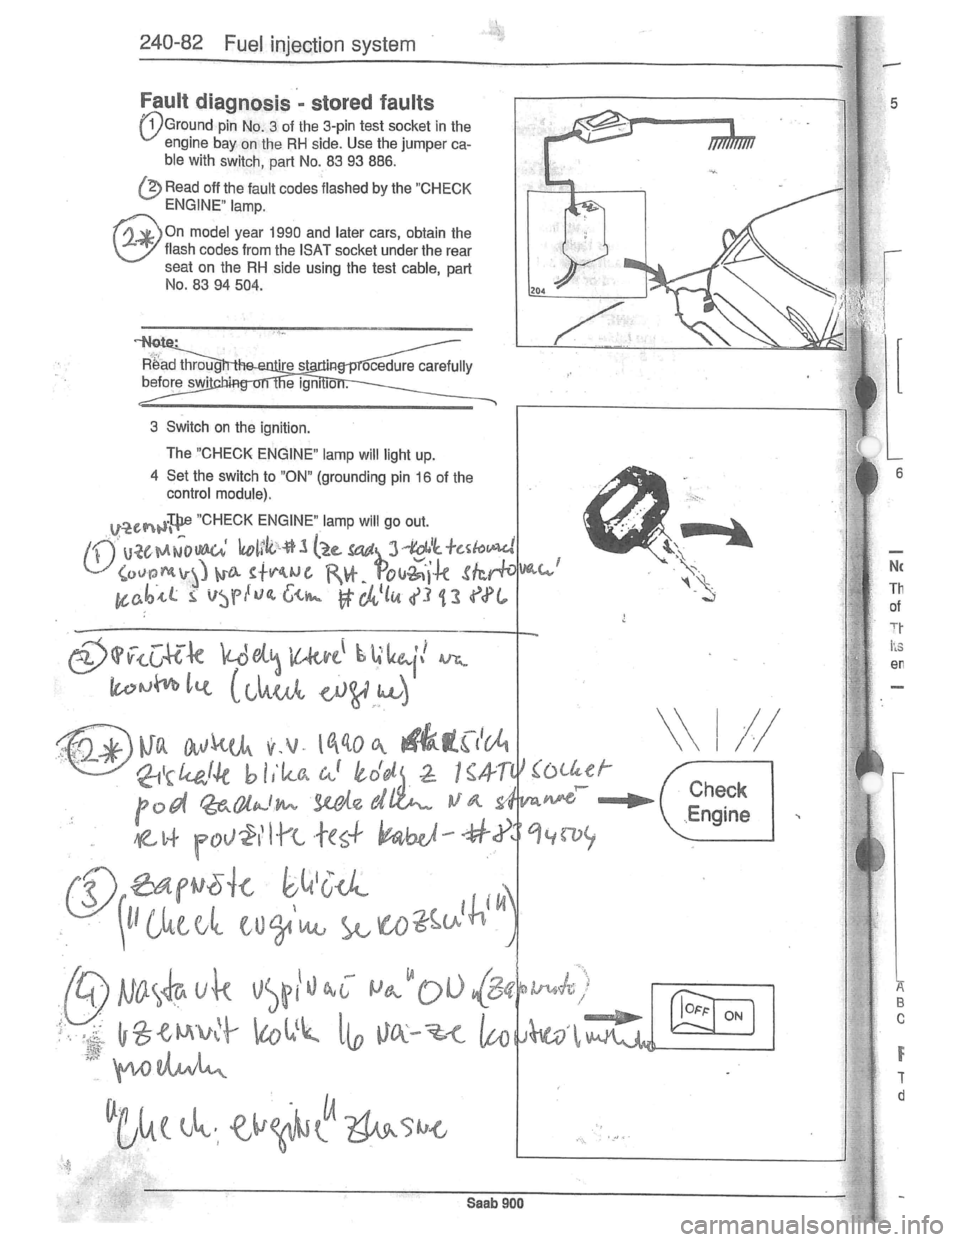 240-82 Fuel injection system
Fault diagnosis - stored faults
1 Ground pin No. 3 of the 3-pin test socket in the
engine bay on the RH side. Use the jumper ca-
ble with switch, part No. 83 93 886.
2 Read off the fault codes flashed by the "CHECK
ENGINE" lamp.
2* On model year 1990 and later cars, obtain the
flash codes from the ISAT socket under the rear
seat on the RH side using the test cable, part
No. 83 94 504.
204
Note:
Read through the entire starting procedure carefully
before switching on the ignition.
3 Switch on the ignition.
The "CHECK ENGINE" lamp will light up.
4 Set the switch to "ON" (grounding pin 16 of the
control module).
The "CHECK ENGINE" lamp will go out.
uzemnit
1 uzemňovací kolík #3 (ze sady 3-kolík testovací
soupravy) na straně RH. Použijte startovací
kabel s vypínačem # dílu 83 93 886
2 Přečtěte kódy které blikají na
kontrolce (check engine)
2* Na autech r.v. 1990 a
získejte blikací kódy z ISAT socket
pod zadním sedadlem na straně
RH použijte test kabel - #8394504
3 Zapněte klíček
("Check engine se rozsvítí")
4 Nastavte vypínač na "ON" (zapnuto)
uzemnit kolík 16 na-ze kontrolního
modulu
"Check engine" zhasne
Check
Engine
OFF ON
Saab 900
5
6
Th
of
en
A
B
C
T
d
carmanualsonline.info